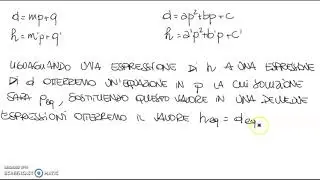 d = mp+q d = ap²+bp+c
h = m'p+q' h = a'p²+b'p+c'
UGUAGLIANDO UNA ESPRESSIONE DI h A UNA ESPRESSIONE
DI d OTTERREMO UN'EQUAZIONE IN P LA CUI SOLUZIONE
SARÀ Peq, SOSTITUENDO QUESTO VALORE IN UNA DELLE DUE
ESPRESSIONI OTTERREMO IL VALORE heq = deq.
SCREENCAST-O-MATIC